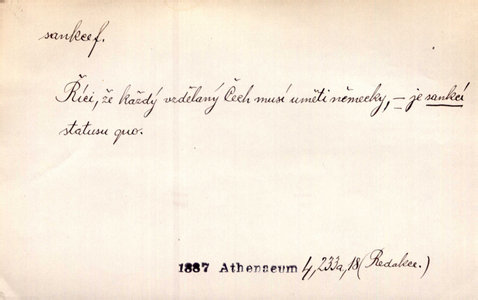 sankce f.
Říci, že každý vzdělaný Čech musí uměti německy, – je sankcí
statusu quo.
1887 Athenaeum 4, 233a, 18 (Redakce.)